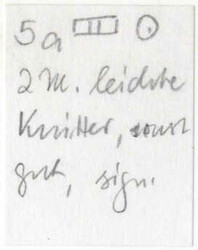 5a
2 M. leichte
Knitter, sonst
gut, sign.